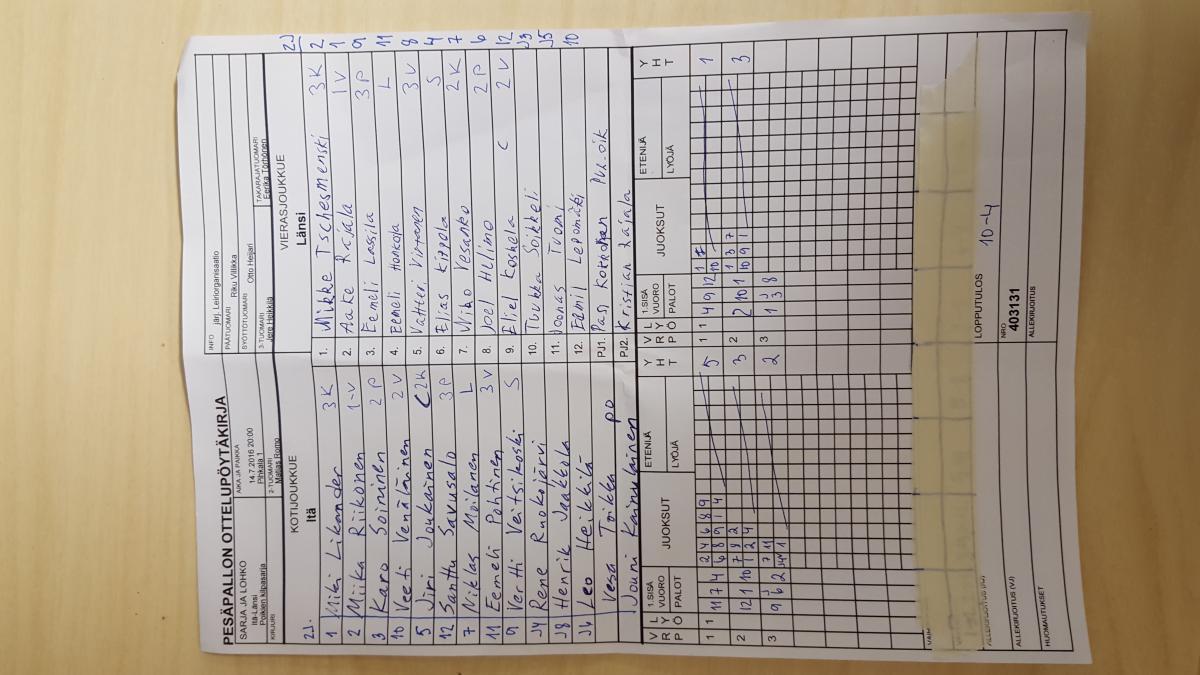 PESÄPALLON OTTELUPÖYTÄKIRJA
SARJA JA LOHKO
Itä-Länsi
Poikien kilpasarja
AIKA JA PAIKKA
14.7.2016 20:00
Pirkala 1
KIRJURI
2-TUOMARI
Matias Romo
INFO järj. Leiriorganisaatio
PÄÄTUOMARI Riku Villikka
SYÖTTÖTUOMARI Otto Heijari
3-TUOMARI
Jere Heikkilä
TAKARAJATUOMARI
Eerika Törhönen
KOTIJOUKKUE
Itä
VIERASJOUKKUE
Länsi
2J.
1 Miki Likander 3K
2 Miika Riikonen 1-V
3 Karo Soininen 2P
10 Veeti Venäläinen 2V
5 Jini Joukainen C 2K
12 Santtu Savusalo 3P
7 Niklas Moilanen L
11 Eemeli Pohtinen 3V
9 Vertti Veitsikoski S
J4 Reme Ruokojärvi
J8 Henrik Jaakkola
J6 Leo Heikkilä
Vesa Toikka PO
Jouni Kainulainen
2J
1. Miikke Tschesmenski 3K 2
2. Aake Rajala 1V 1
3. Eemeli Lassila 3P 9
4. Eemeli Honkola L 11
5. Valtteri Virtanen 3V 8
6. Elias Kitola S 4
7. Niko Vesanko 2K 7
8. Joel Helimo 2P 6
9. Eliel Koskela C 2V 12
10. Tuukka Soikkeli J3
11. Joonas Tuomi J5
12. Eemil Lepomäki 10
PJ1. Pasi Kokkonen Pkk-oik
PJ2. Kristian Rajala
V R P
L Y Ö
1.SISÄ
VUORO
PALOT
JUOKSUT
ETENIJÄ
LYÖJÄ
Y H T
V R P
L Y Ö
1.SISÄ
VUORO
PALOT
JUOKSUT
ETENIJÄ
LYÖJÄ
Y H T
1 1 11 7 4
2 4 6 8 9
6 8 9 1 4
5
2 12 1 10
7 9 2
1 2 4
3
3 9 6 2
7 11
2
1 1 4 9 12
1
10
1
2 2 10 1
1 3 7
10 9 1
3
3 1 3 8
ALLEKIRJOITUS (VJ)
HUOMAUTUKSET
LOPPUTULOS 10-4
NRO
403131
ALLEKIRJOITUS